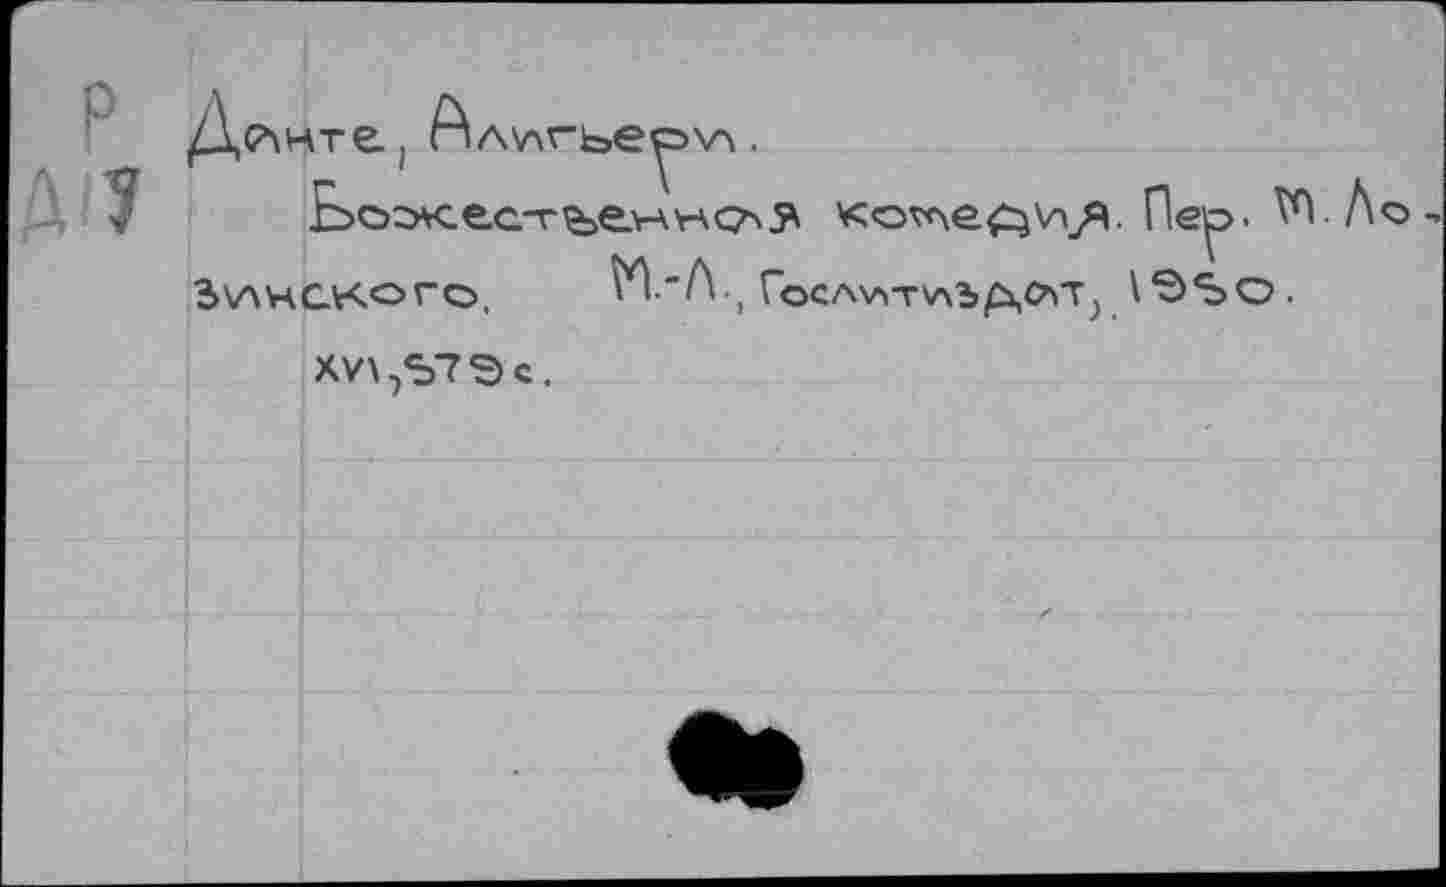 Р
Д 17
Данте, Алигьери.
Божественная комедия. Пер. М. Ло-
зинского. М.-Л., Гослитиздат, 1950.
XVI, 579 с.